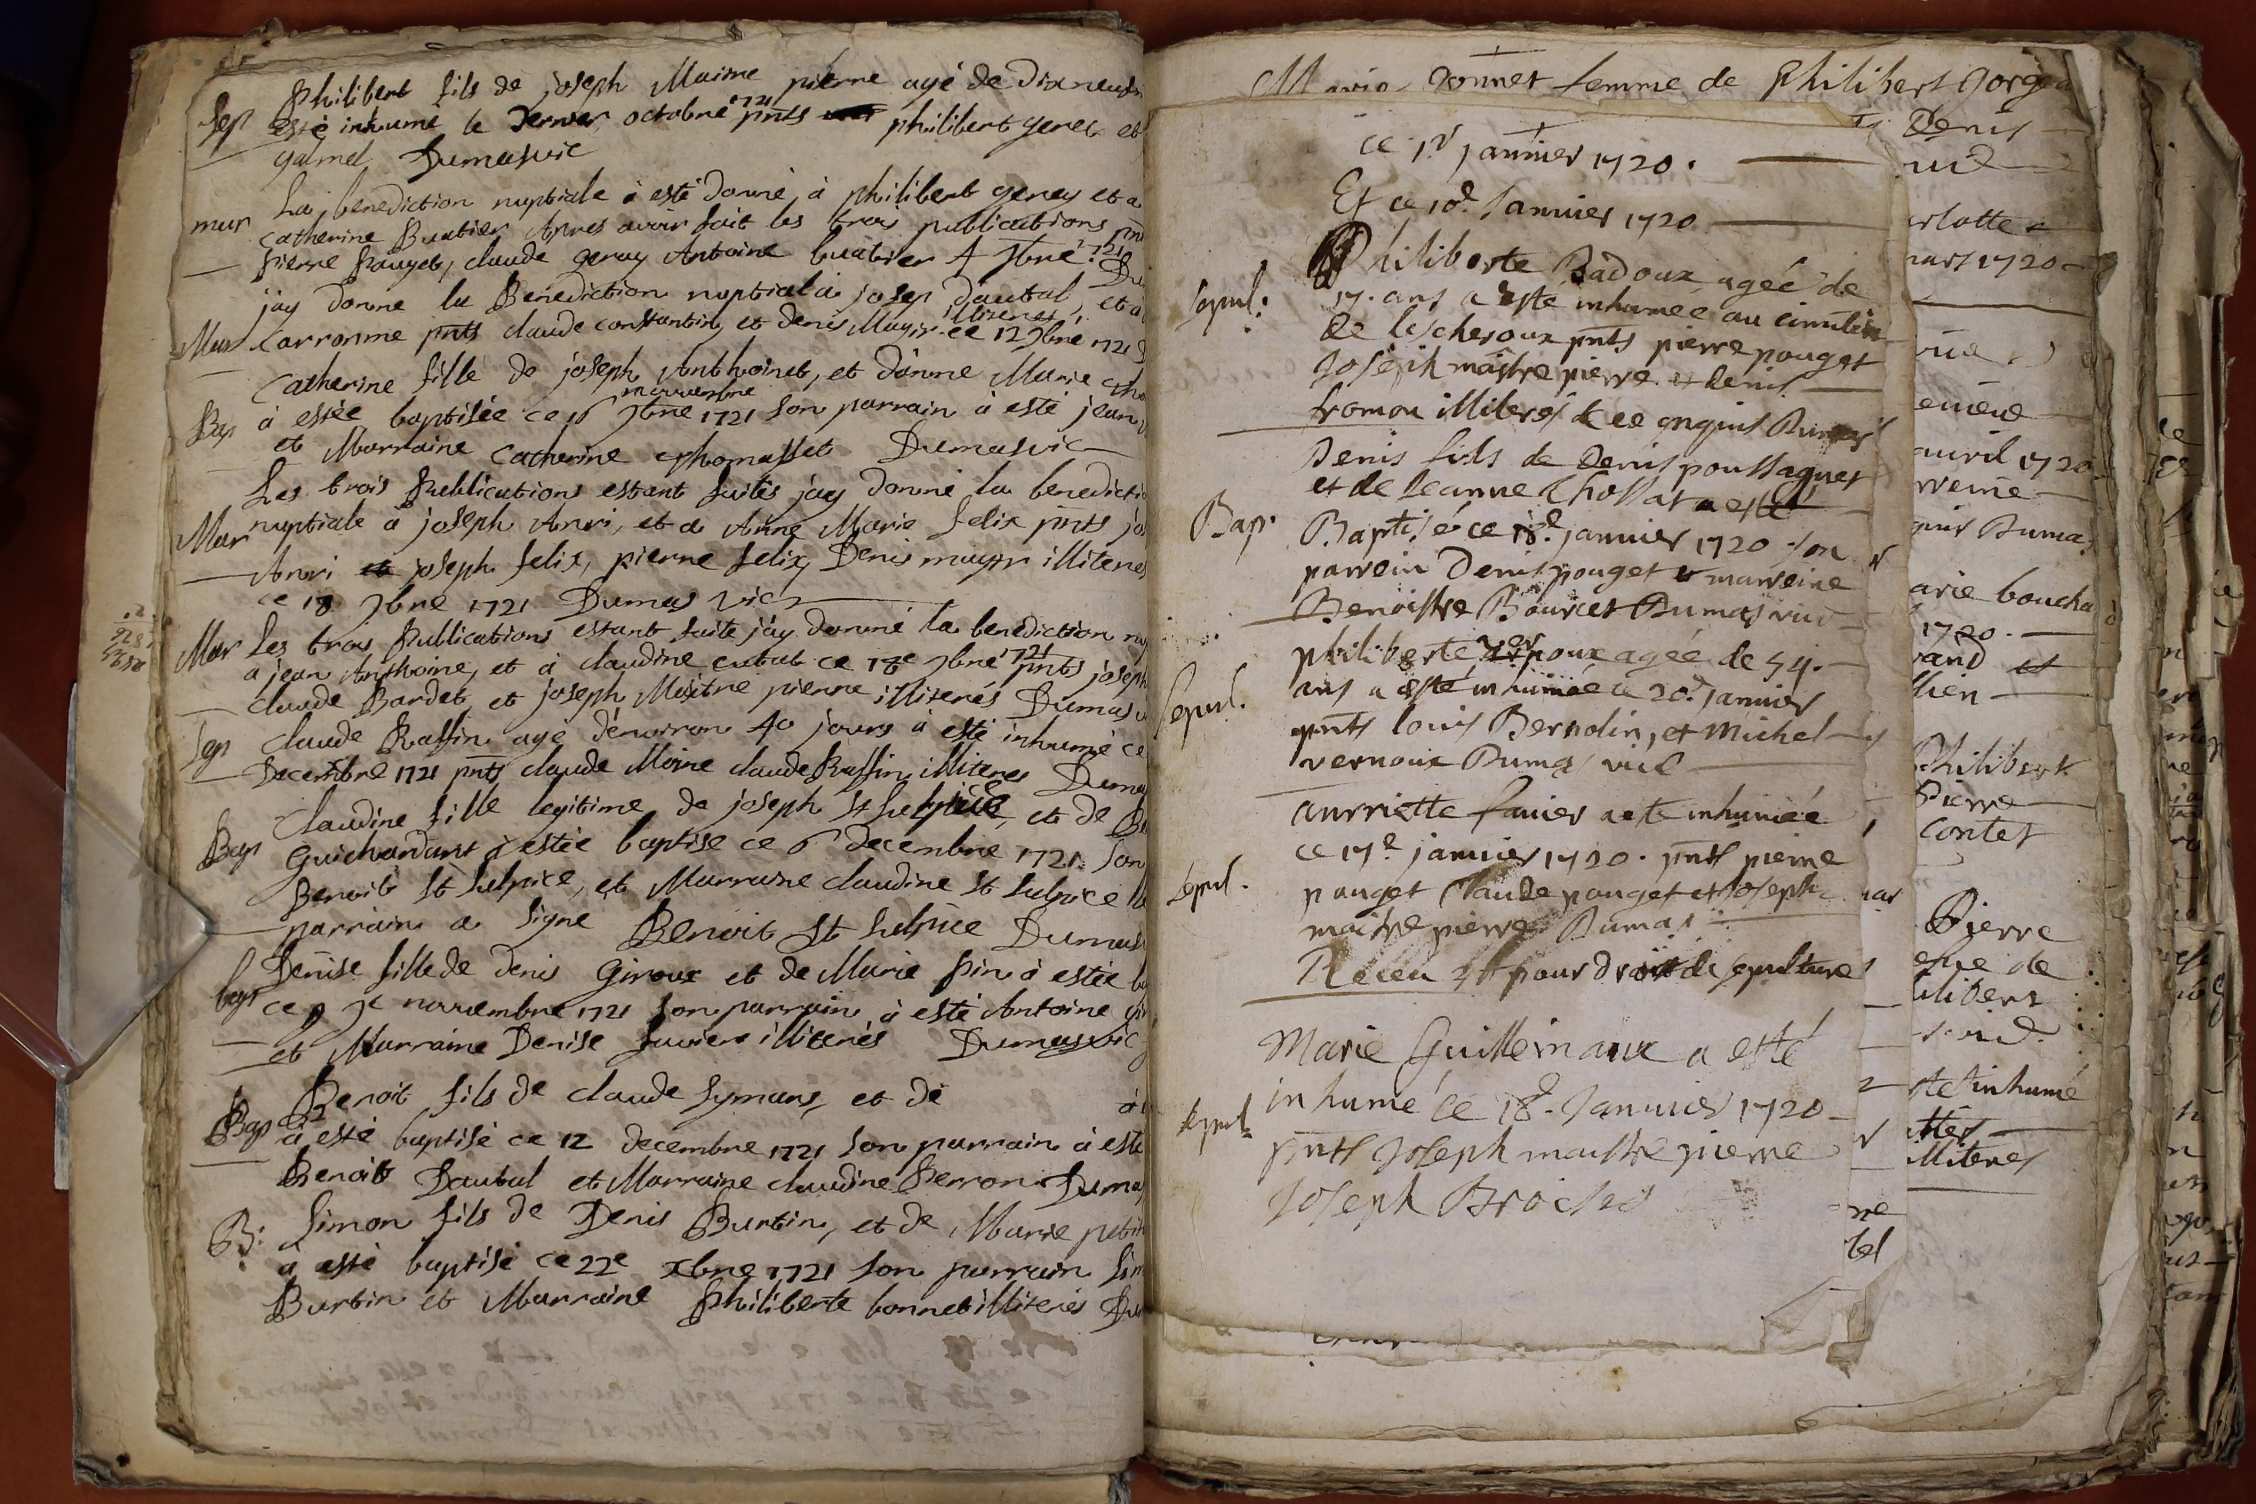 Sep Philibert fils de joseph Maitre pierre agé de Dix neuf
esté inhumé le Dernier octobre 1721 pnts philibert gerey et
galmel Dumas vic
mar La benediction nuptiale à esté donné à philibert gerey et a
catherine Buatier Apres avoir fait les trois publications pnt
pierre pouget, claude gerey Antoine buatier 4 9bre 1721 Du
jay donné la Benediction nuptial à josep dautal, et a
Mar Carronne pnts claude constantin et denis Mayr illiterés ce 12 9bre 1721
Catherine fille de joseph Anthoinet, et d'anne Marie tho
Bap à estée baptisée ce 16 9bre novembre 1721 son parrain à esté jean
et Marraine Catherine thomasset Dumas vic
Les trois Publications estant faites jay donné la benedictio
Mar nuptiale à joseph Anri, et a Anne Marie felix pnts jo
Anri et joseph felix, pierre felix, Denis mayr illiteres
ce 18 9bre 1721 Dumas vic
Mar Les trois Publications estant faite jay donné la benediction nu
a jean Anthoine, et à claudine cutat ce 18e 9bre 1721 pnts joseph
claude Bardet et joseph Maitre pierre illiterés Dumas v
Sep claude Raffin agé d'environ 40 jours à esté inhumé ce
Decembre 1721 pnts claude Moine claude Raffin illiteres Dumas
claudine fille legitime de joseph St sulpice, et de Be
Bap Guichardant à estée baptise ce 6 decembre 1721 son
Benoit St sulpice, et Marraine claudine St sulpice le
parrain a signe Benoit St sulpice Dumas
bap Denise fille de denis Giroux et de Marie pin à estée ba
ce 9 novembre 1721 son parrain à esté Antoine gir
et Marraine Denise favier illiterés Dumas vic
Bap Benoit fils de claude symans, et de à
à esté baptisé ce 12 decembre 1721 son parrain à esté
Benoit Dautal et Marraine claudine Perron Dumas
B: Simon fils de Denis Burtin, et de Marie petit
à esté baptisé ce 22e Xbre 1721 son parrain Sim
Burtin et Marraine Philiberte bonnet illiterés Du
Marie Jonnet femme de Philibert Jorge
ce 1r janvier 1720.
Et ce 10e. Janvier 1720
Philiberte Badoux, agée de
sepul: 17. ans a esté inhumee au cimitier
de lescheroux pnts pierre pouget
Joseph maistre pierre et denis
fromon illiterés de ce enquis Dumas
Denis fils de Denis poussaguet
et de Jeanne Chossat a esté
Bap. Baptisé ce 18e. janvier 1720 son
parrein Denis pouget et marreine
Benoistre Bourcet Dumas vic
philiberte agée de 54.
Sepul. ans a esté inhumée ce 20e. Janvier
pnts louis Bernolin, et Michel
vernoux Dumas vic
anrriette favier a este inhumée
ce 17e janvier 1720. pnts pierre
sepul. pouget Claude pouget et Joseph
maistre pierre Dumas
Receu pour droit de sepulture
Marie Guillemaux a esté
sepul. inhumé ce 18e. Janvier 1720
pnts Joseph maistre pierre
Joseph Broches
Denis
arlotte
mars 1720
avril 1720
rreine
quis Dumas
arie boucha
1720.
et
Philibert
Pierre
Contet
Pierre
de
ilibert
ste inhumé
illiteres